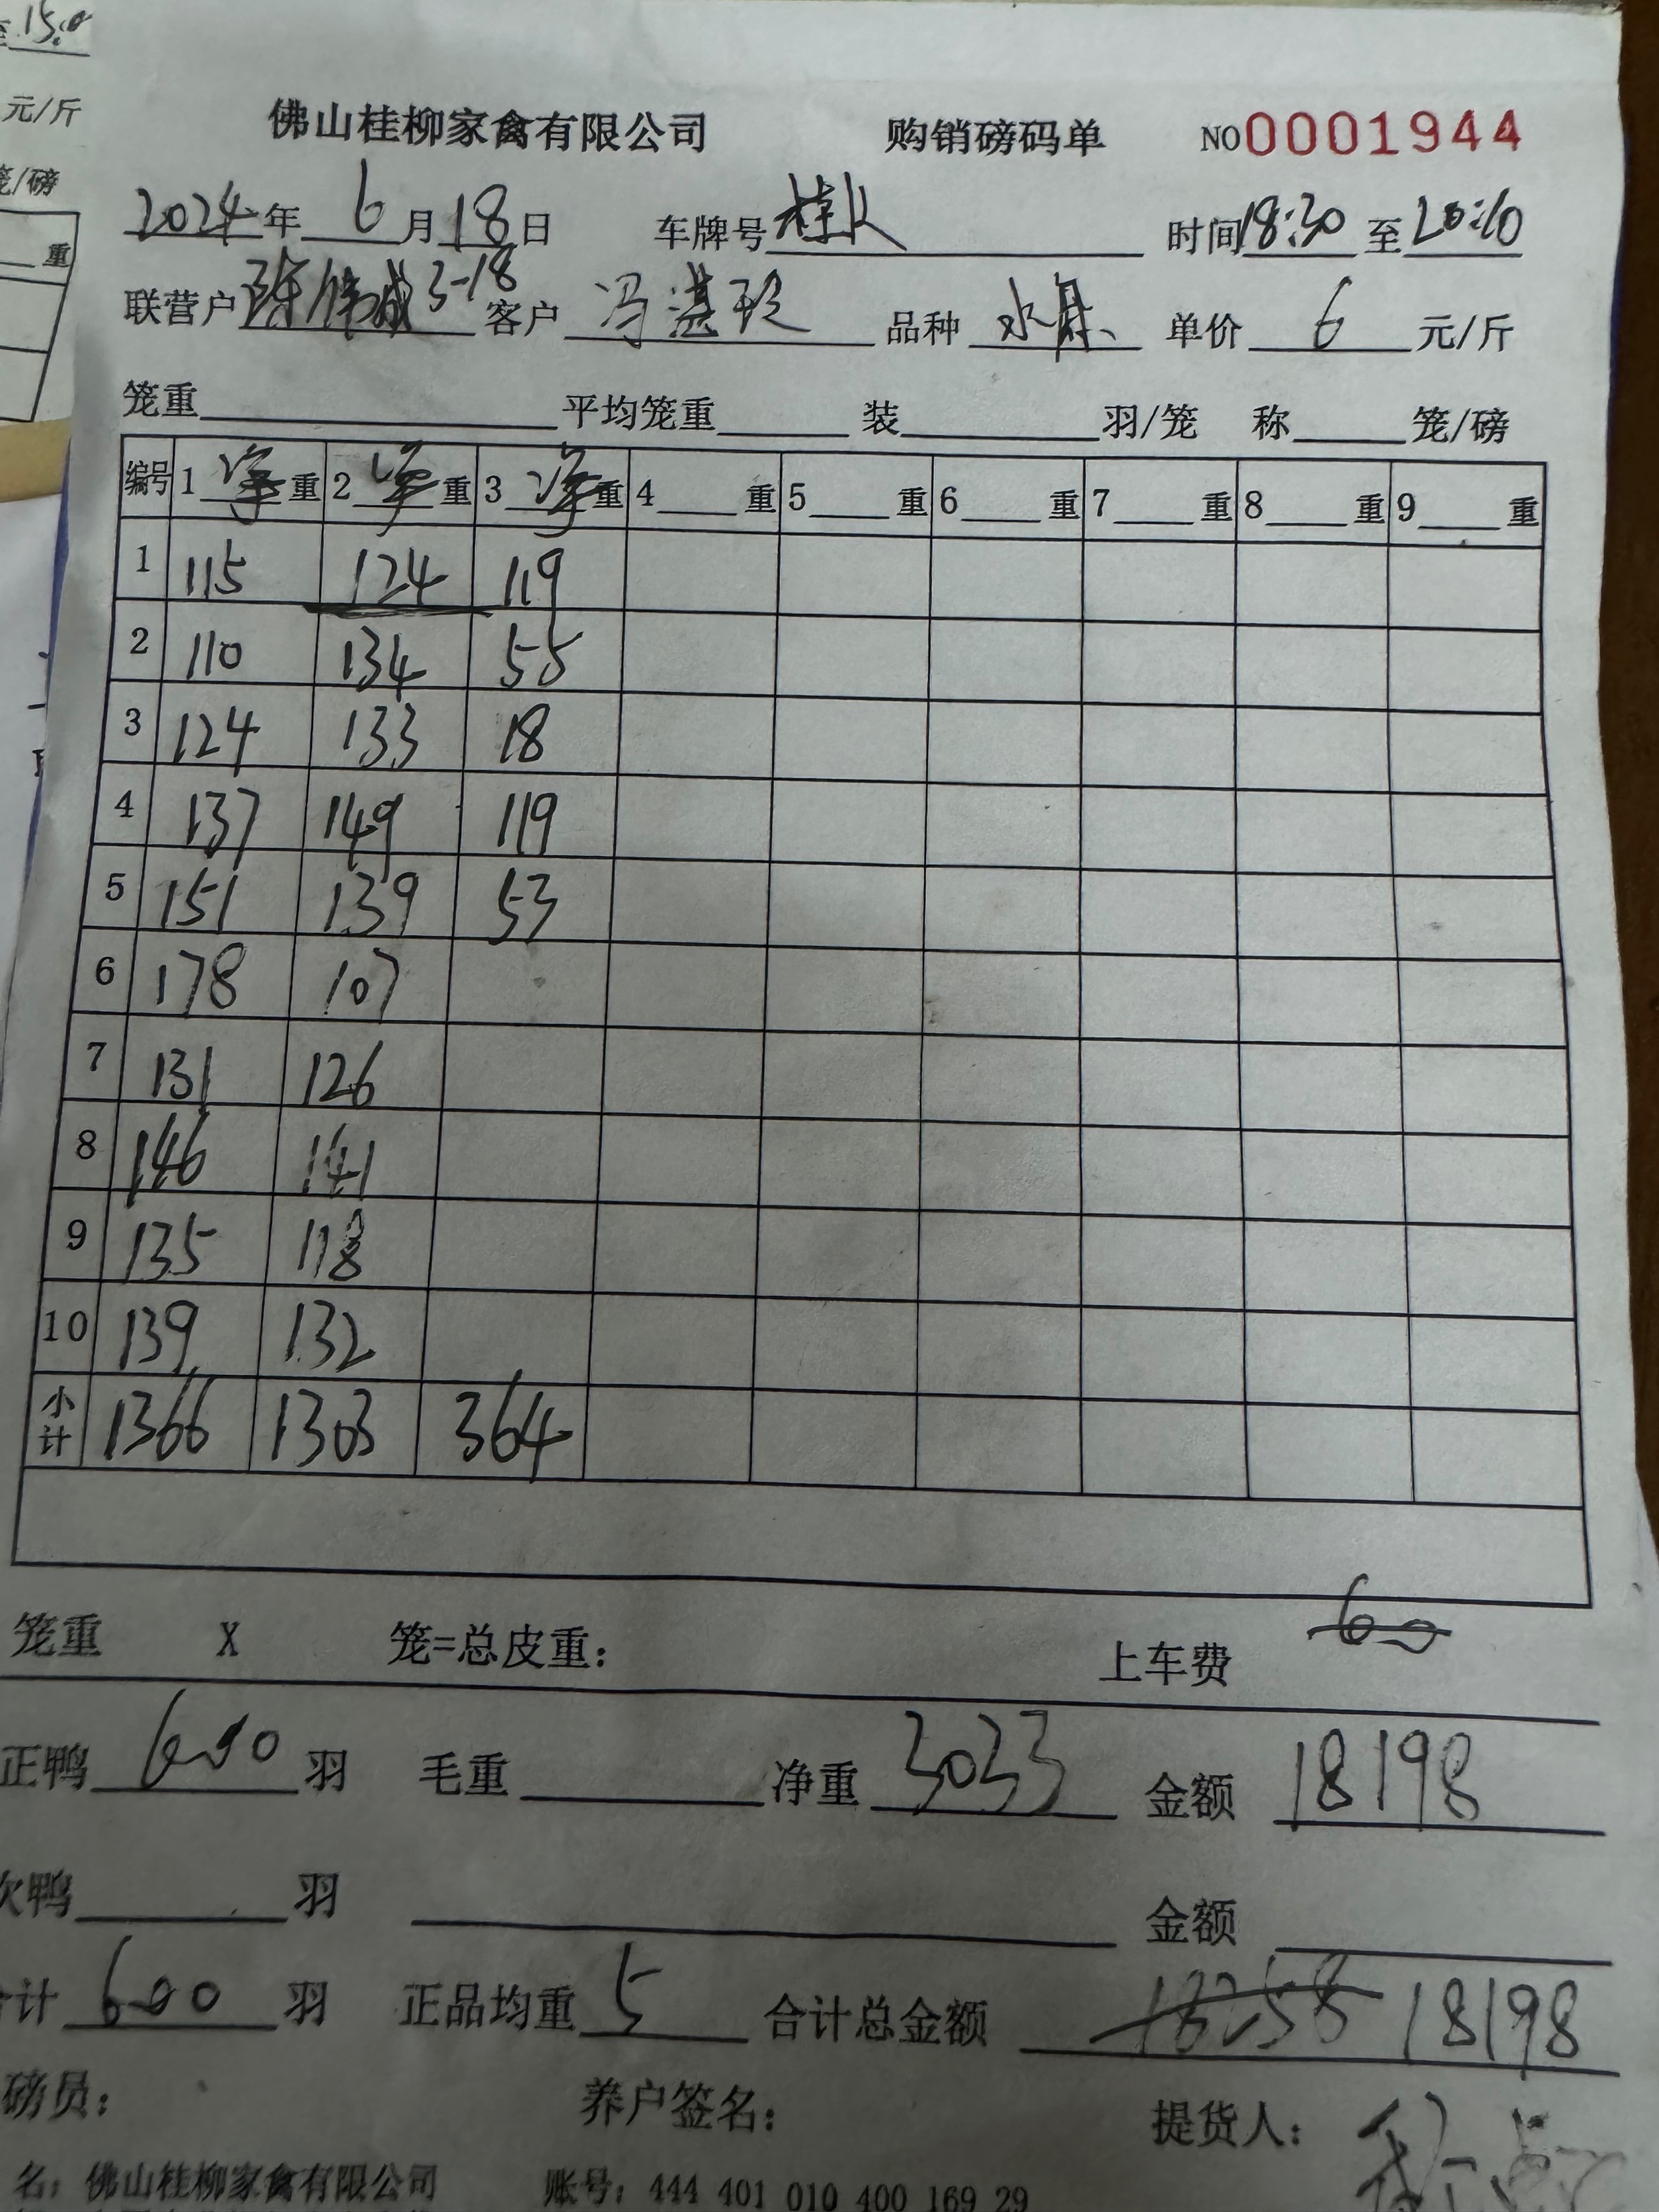 至 15:0
元/斤
笼/磅
重
佛山桂柳家禽有限公司 购销磅码单 NO 0001944
2024年 6月18日 车牌号 时间18:30至20:10
联营户 陈伟成3-18 客户 冯湛玲 品种 水鸭 单价 6 元/斤
笼重 平均笼重 装 羽/笼 称 笼/磅
编号 1 净 重 2 净 重 3 净 重 4 重 5 重 6 重 7 重 8 重 9 重
1 115 124 119
2 110 134 55
3 124 133 18
4 137 149 119
5 151 139 53
6 178 107
7 131 126
8 146 141
9 135 118
10 139 132
小计 1366 1303 364
笼重 X 笼=总皮重: 上车费 60
正鸭 600 羽 毛重 净重 3033 金额 18198
次鸭 羽 金额
计 600 羽 正品均重 5 合计总金额 18258 18198
磅员: 养户签名: 提货人:
名: 佛山桂柳家禽有限公司 账号: 444 401 010 400 169 29